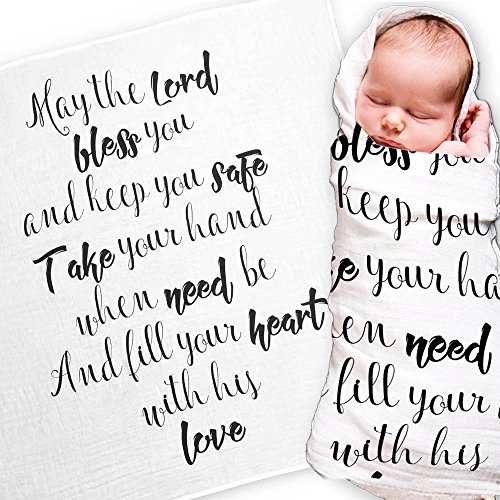 May the Lord
bless you
and keep you safe
Take your hand
when need be
And fill your heart
with his
love
bless you
keep you
your ha
need
fill your
with his